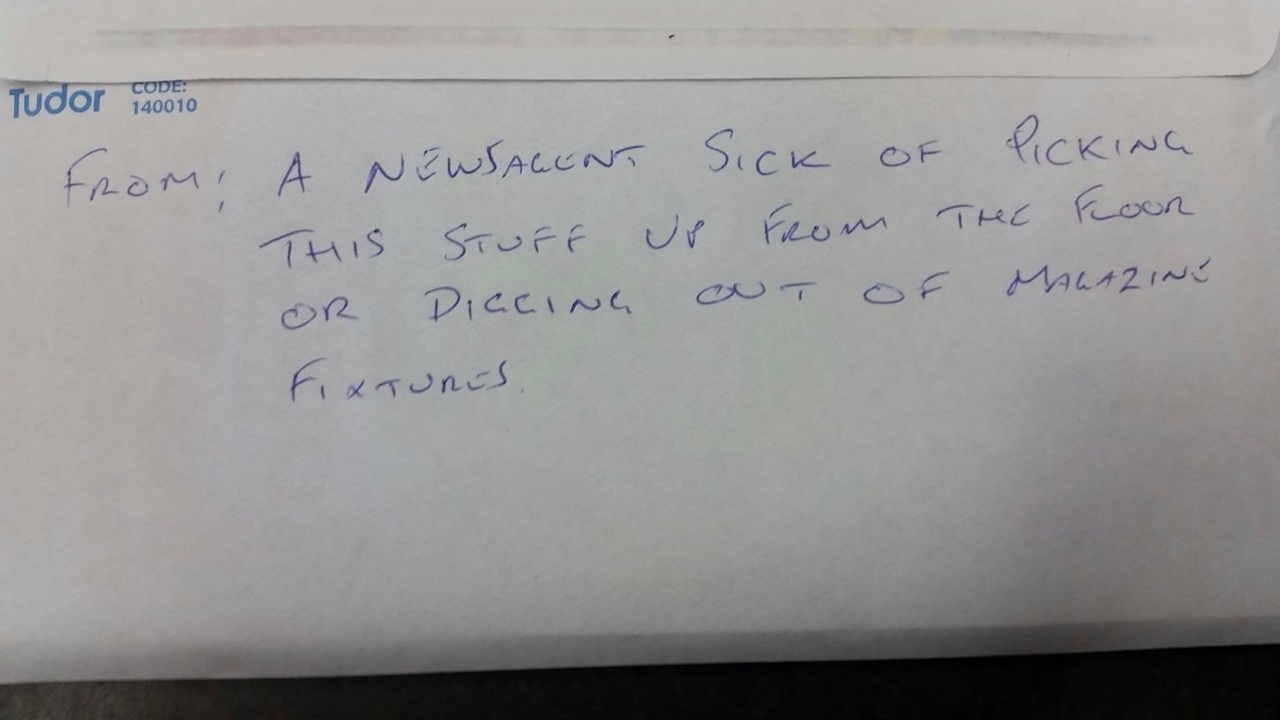 Tudor CODE:
140010
FROM: A NEWSAGENT SICK OF PICKING
THIS STUFF UP FROM THE FLOOR
OR DIGGING OUT OF MAGAZINE
FIXTURES.